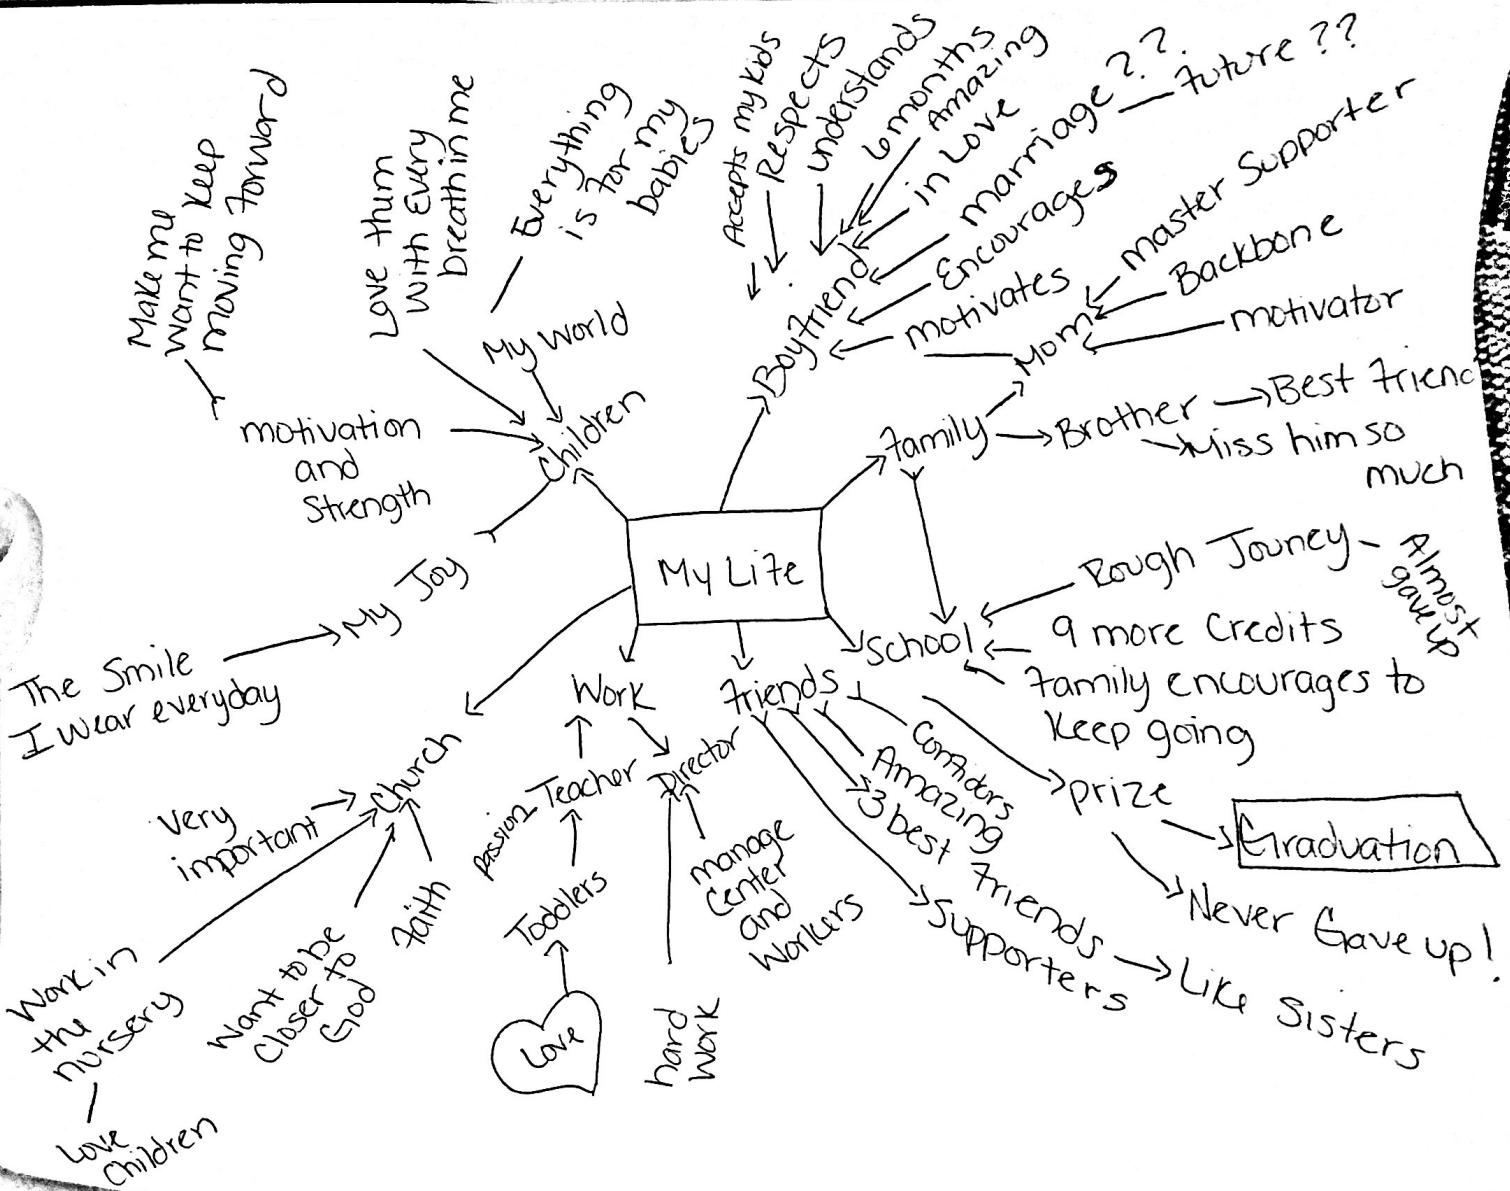 My Life
Children
My World
Everything
is for my
babies
Love them
With Every
breath in me
motivation
and
Strength
Make me
Want to Keep
moving forward
My Joy
The Smile
I Wear everyday
Boyfriend
Accepts my kids
Respects
understands
6 months
Amazing
in Love
marriage??
Future??
Encourages
motivates
Family
Mom
Master Supporter
Backbone
motivator
Brother
Best Friend
Miss him so
much
School
Rough Jouney
Almost
gave up
9 more Credits
Family encourages to
Keep going
prize
Graduation
Never Gave up!
Friends
Confidors
Amazing
3 best Friends
Like Sisters
Supporters
Work
Teacher
passion
Toddlers
Love
Director
manage
Center
and
Workers
hard
Work
Church
Very
important
Faith
Want to be
Closer to
God
Work in
the
nursery
Love
Children